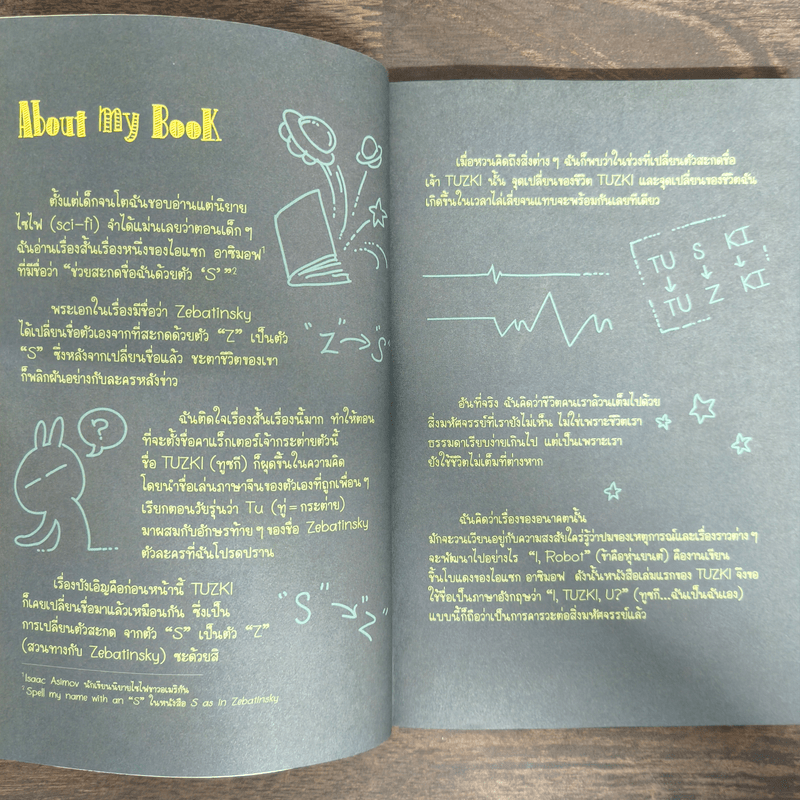 About my Book
ตั้งแต่เด็กจนโตฉันชอบอ่านแต่นิยาย
ไซไฟ (sci-fi) จำได้แม่นเลยว่าตอนเด็ก ๆ
ฉันอ่านเรื่องสั้นเรื่องหนึ่งของไอแซก อาซิมอฟ¹
ที่มีชื่อว่า “ช่วยสะกดชื่อฉันด้วยตัว ‘S’ ”²
พระเอกในเรื่องมีชื่อว่า Zebatinsky
ได้เปลี่ยนชื่อตัวเองจากที่สะกดด้วยตัว “Z” เป็นตัว
“S” ซึ่งหลังจากเปลี่ยนชื่อแล้ว ชะตาชีวิตของเขา
ก็พลิกผันอย่างกับละครหลังข่าว
"Z" → "S"
?
ฉันติดใจเรื่องสั้นเรื่องนี้มาก ทำให้ตอน
ที่จะตั้งชื่อคาแร็กเตอร์เจ้ากระต่ายตัวนี้
ชื่อ TUZKI (ทูซกี) ก็ผุดขึ้นในความคิด
โดยนำชื่อเล่นภาษาจีนของตัวเองที่ถูกเพื่อน ๆ
เรียกตอนวัยรุ่นว่า Tu (ทู่ = กระต่าย)
มาผสมกับอักษรท้าย ๆ ของชื่อ Zebatinsky
ตัวละครที่ฉันโปรดปราน
เรื่องบังเอิญคือก่อนหน้านี้ TUZKI
ก็เคยเปลี่ยนชื่อมาแล้วเหมือนกัน ซึ่งเป็น
การเปลี่ยนตัวสะกด จากตัว “S” เป็นตัว “Z”
(สวนทางกับ Zebatinsky) ซะด้วยสิ
"S" → "Z"
¹ Isaac Asimov นักเขียนนิยายไซไฟชาวอเมริกัน
² Spell my name with an “S” ในหนังสือ S as in Zebatinsky
เมื่อหวนคิดถึงสิ่งต่าง ๆ ฉันก็พบว่าในช่วงที่เปลี่ยนตัวสะกดชื่อ
เจ้า TUZKI นั้น จุดเปลี่ยนของชีวิต TUZKI และจุดเปลี่ยนของชีวิตฉัน
เกิดขึ้นในเวลาไล่เลี่ยจนแทบจะพร้อมกันเลยทีเดียว
TU S KI
↓ ↓ ↓
TU Z KI
อันที่จริง ฉันคิดว่าชีวิตคนเราล้วนเต็มไปด้วย
สิ่งมหัศจรรย์ที่เรายังไม่เห็น ไม่ใช่เพราะชีวิตเรา
ธรรมดาเรียบง่ายเกินไป แต่เป็นเพราะเรา
ยังใช้ชีวิตไม่เต็มที่ต่างหาก
ฉันคิดว่าเรื่องของอนาคตนั้น
มักจะวนเวียนอยู่กับความสงสัยใคร่รู้ว่าปมของเหตุการณ์และเรื่องราวต่าง ๆ
จะพัฒนาไปอย่างไร “I, Robot” (ข้าคือหุ่นยนต์) คืองานเขียน
ชิ้นโบแดงของไอแซก อาซิมอฟ ดังนั้นหนังสือเล่มแรกของ TUZKI จึงขอ
ใช้ชื่อเป็นภาษาอังกฤษว่า “I, TUZKI, U?” (ทูซกี...ฉันเป็นฉันเอง)
แบบนี้ก็ถือว่าเป็นการคารวะต่อสิ่งมหัศจรรย์แล้ว